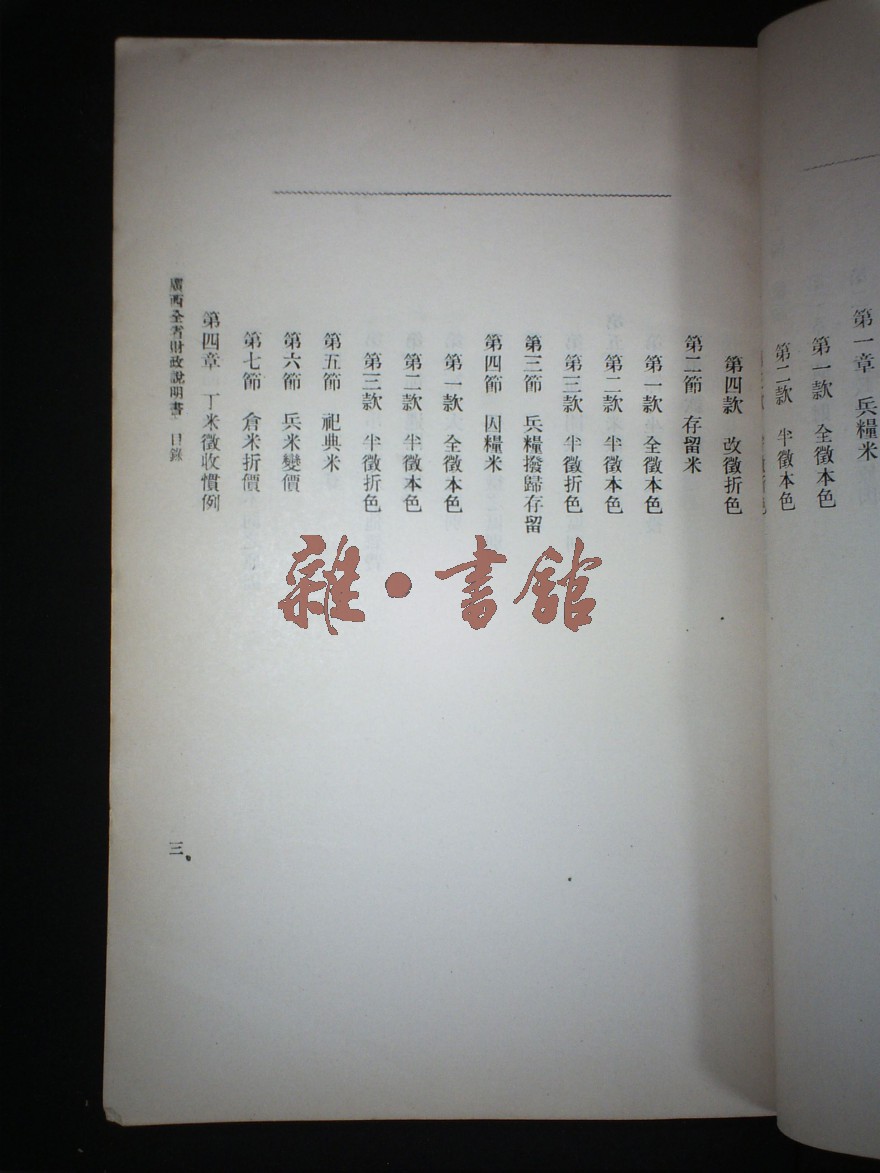 第一章 兵糧米
第一款 全徵本色
第二款 半徵本色
折色
第四款 改徵折色
第二節 存留米
第一款 全徵本色
第二款 半徵本色
第三款 半徵折色
第三節 兵糧撥歸存留
第四節 囚糧米
第一款 全徵本色
第二款 半徵本色
第三款 半徵折色
第五節 祀典米
第六節 兵米變價
第七節 倉米折價
第四章 丁米徵收慣例
廣西全省財政說明書 目錄
三
雜·書館